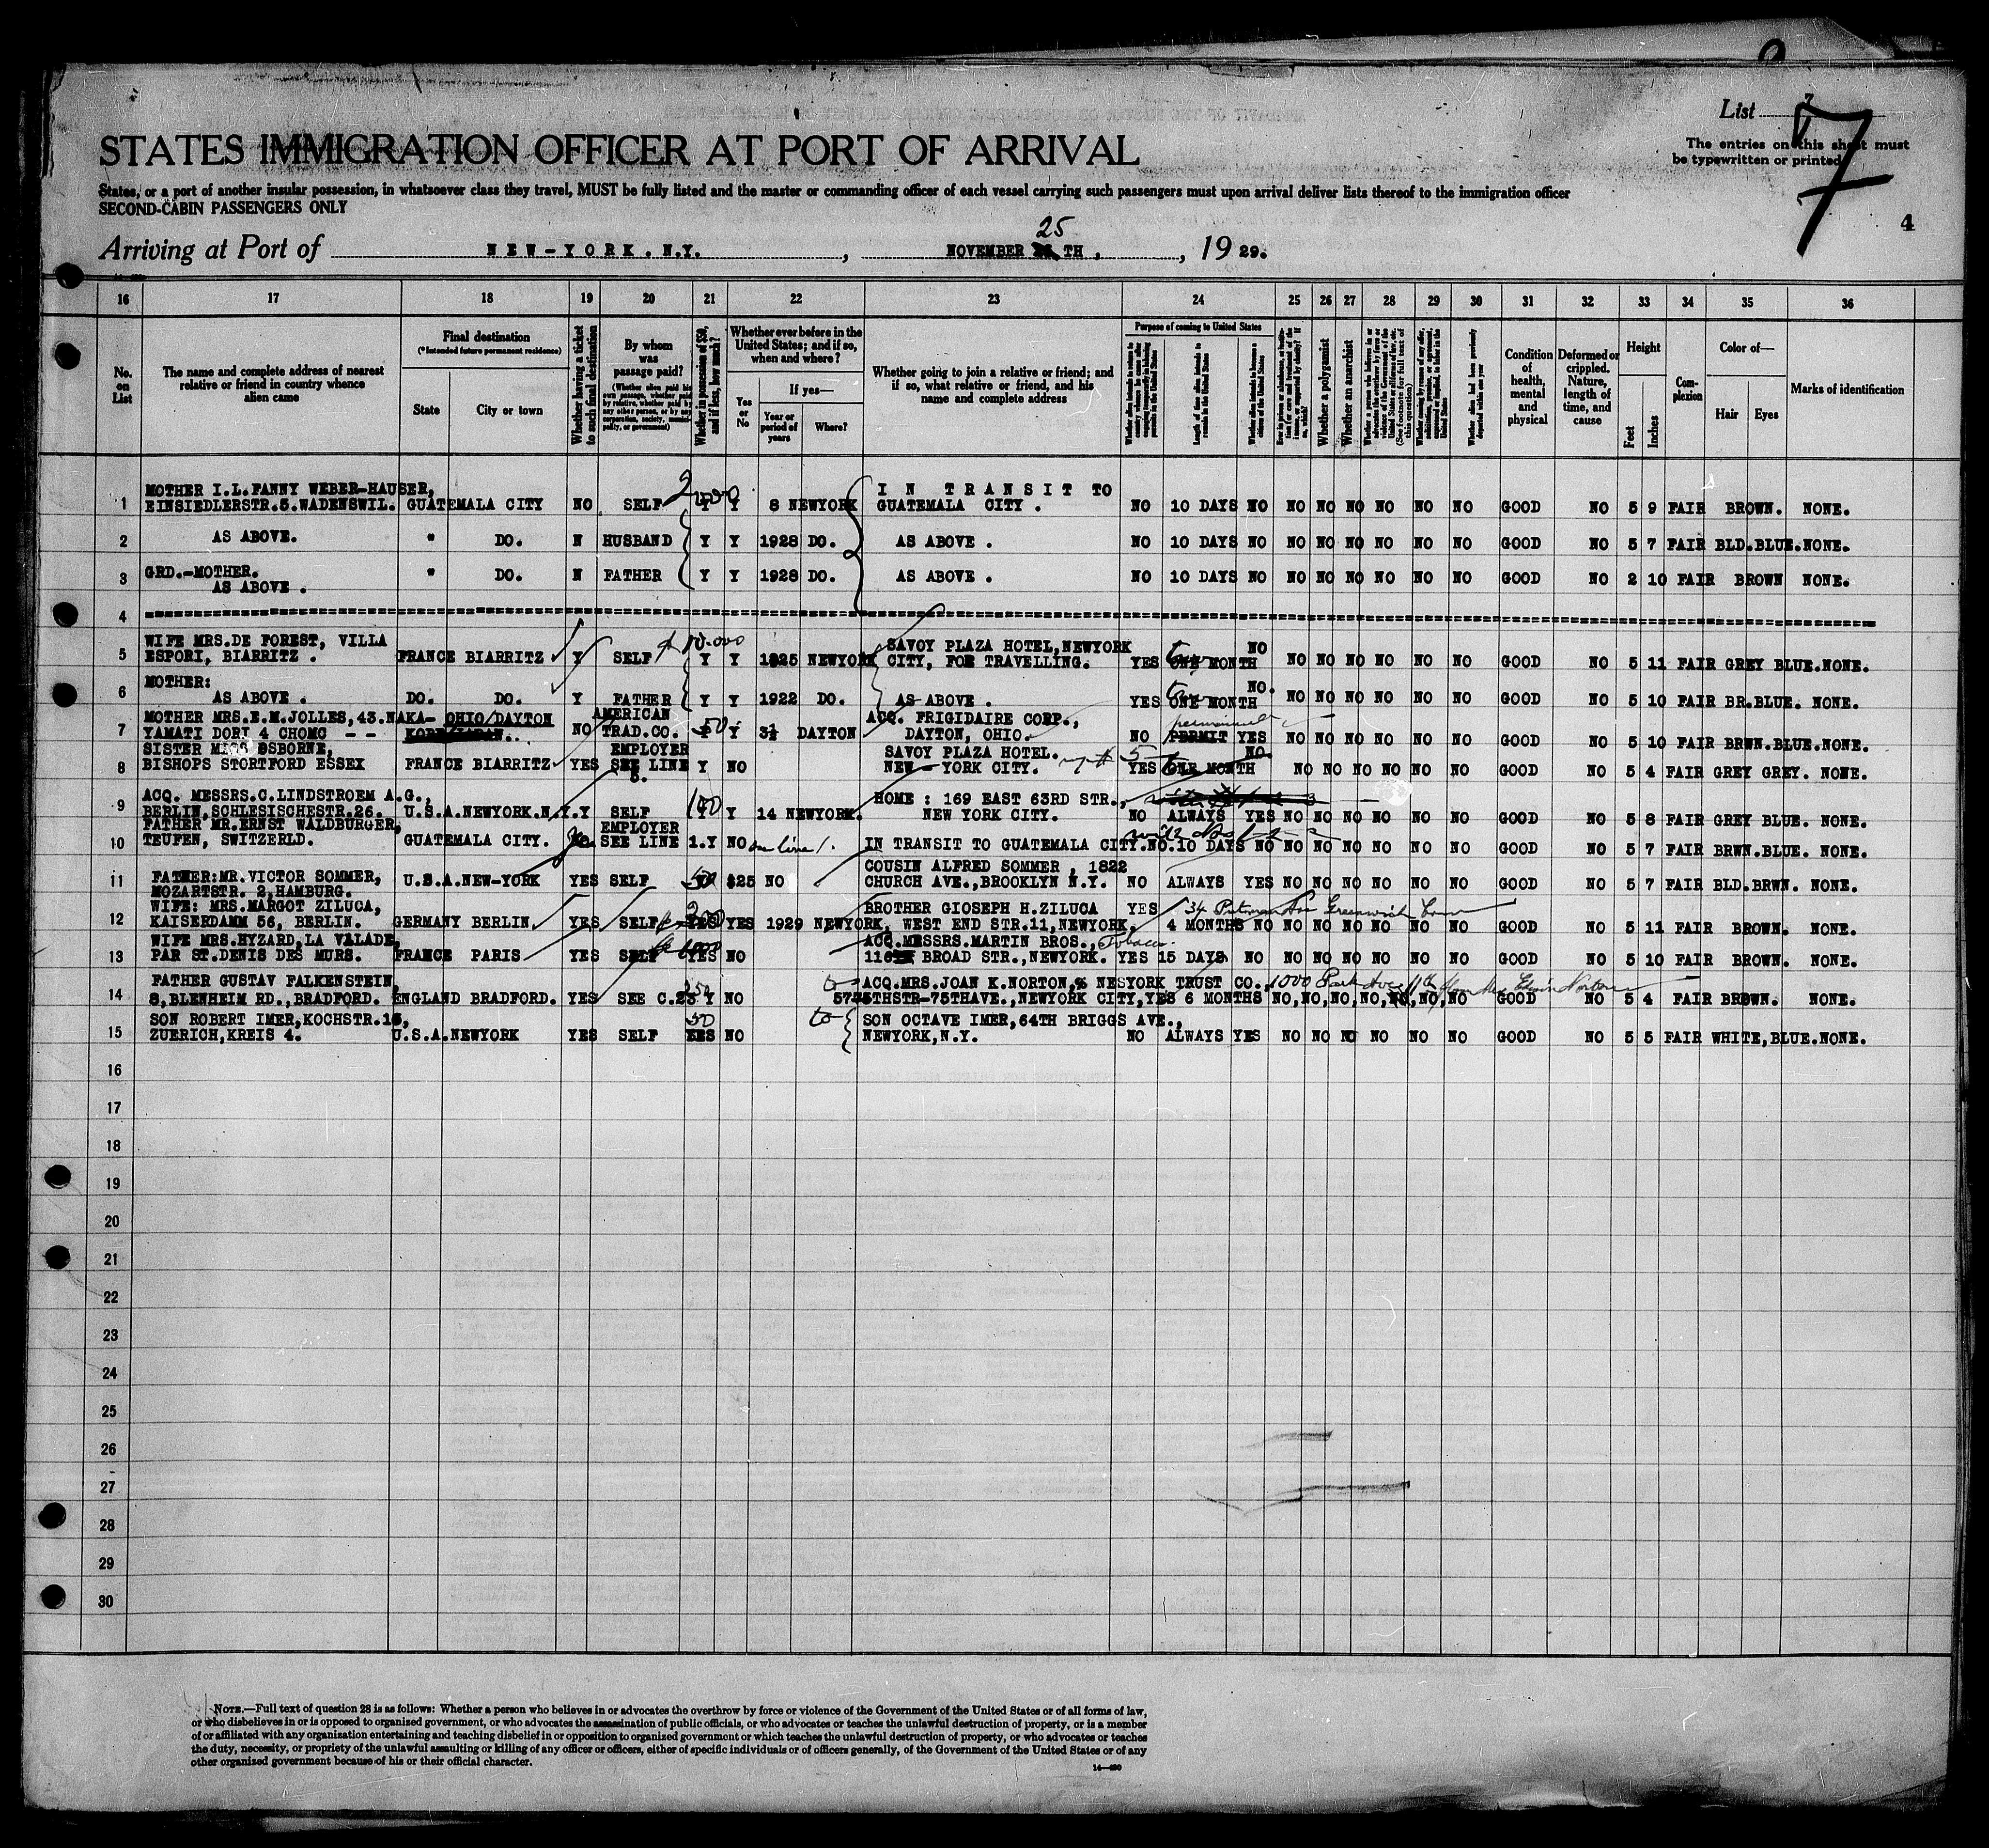 List 7
7
The entries on this sheet must
be typewritten or printed
STATES IMMIGRATION OFFICER AT PORT OF ARRIVAL
States, or a port of another insular possession, in whatsoever class they travel, MUST be fully listed and the master or commanding officer of each vessel carrying such passengers must upon arrival deliver lists thereof to the immigration officer
SECOND-CABIN PASSENGERS ONLY
4
25
Arriving at Port of NEW-YORK. N.Y. , NOVEMBER TH , , 19 29.
16 17 18 19 20 21 22 23 24 25 26 27 28 29 30 31 32 33 34 35 36
No. on List
The name and complete address of nearest relative or friend in country whence alien came
Final destination
(*Intended future permanent residence)
State
City or town
Whether having a ticket to such final destination
By whom was passage paid?
(Whether alien paid his own passage, whether paid by relative, whether paid by any other person, or by any corporation, society, municipality, or government)
Whether in possession of $50, and if less, how much?
Whether ever before in the United States; and if so, when and where?
Yes or No
If yes—
Year or period of years
Where?
Whether going to join a relative or friend; and if so, what relative or friend, and his name and complete address
Purpose of coming to United States
Length of time alien intends to remain in the United States
Whether alien intends to become a citizen of the United States
Whether a polygamist
Whether an anarchist
(See footnote for full text of this question)
Whether alien had been previously deported within one year
Condition of health, mental and physical
Deformed or crippled. Nature, length of time, and cause
Height
Feet
Inches
Complexion
Color of—
Hair
Eyes
Marks of identification
MOTHER I.L.FANNY WEBER-HAUSER, IN TRANSIT TO
1 EINSIEDLERSTR.5.WADENSWIL. GUATEMALA CITY NO SELF Y Y 8 NEWYORK GUATEMALA CITY . NO 10 DAYS NO NO NO NO NO NO NO GOOD NO 5 9 FAIR BROWN. NONE.
2 AS ABOVE. " DO. N HUSBAND Y Y 1928 DO. AS ABOVE . NO 10 DAYS NO NO NO NO NO NO NO GOOD NO 5 7 FAIR BLD.BLUE.NONE.
GRD.-MOTHER.
3 AS ABOVE . " DO. N FATHER Y Y 1928 DO. AS ABOVE . NO 10 DAYS NO NO NO NO NO NO NO GOOD NO 2 10 FAIR BROWN NONE.
4
WIFE MRS.DE FOREST, VILLA 10.000 SAVOY PLAZA HOTEL,NEWYORK NO
5 ESPORI, BIARRITZ . FRANCE BIARRITZ Y SELF Y Y 1925 NEWYORK CITY, FOR TRAVELLING. YES ONE MONTH NO NO NO NO NO NO GOOD NO 5 11 FAIR GREY BLUE.NONE.
MOTHER: NO.
6 AS ABOVE . DO. DO. Y FATHER Y Y 1922 DO. AS ABOVE . YES ONE MONTH NO NO NO NO NO NO GOOD NO 5 10 FAIR BR.BLUE. NONE.
MOTHER MRS.E.M.JOLLES,43.NAKA- OHIO/DAYTON AMERICAN 50 ACQ. FRIGIDAIRE CORP., permanent
7 YAMATI DORI 4 CHOMC -- KOBE/JAPAN.. NO TRAD.CO. Y Y 3½ DAYTON DAYTON, OHIO. NO PERMIT YES NO NO NO NO NO NO GOOD NO 5 10 FAIR BRWN.BLUE.NONE.
SISTER MISS OSBORNE, EMPLOYER SAVOY PLAZA HOTEL. NO
8 BISHOPS STORTFORD ESSEX FRANCE BIARRITZ YES SEE LINE 5. Y NO NEW-YORK CITY. YES ONE MONTH NO NO NO NO NO NO GOOD NO 5 4 FAIR GREY GREY. NONE.
ACQ. MESSRS.C.LINDSTROEM A.G., HOME : 169 EAST 63RD STR.,
9 BERLIN,SCHLESISCHESTR.26. U.S.A.NEWYORK.N.Y.Y SELF Y 14 NEWYORK. NEW YORK CITY. NO ALWAYS YES NO NO NO NO NO NO GOOD NO 5 8 FAIR GREY BLUE. NONE.
FATHER MR.ERNST WALDBURGER, EMPLOYER
10 TEUFEN, SWITZERLD. GUATEMALA CITY. SEE LINE 1.Y NO on line 1. IN TRANSIT TO GUATEMALA CITY.NO.10 DAYS NO NO NO NO NO NO NO GOOD NO 5 7 FAIR BRWN.BLUE. NONE.
FATHER:MR.VICTOR SOMMER, COUSIN ALFRED SOMMER , 1822
11 MOZARTSTR. 2,HAMBURG. U.S.A.NEW-YORK YES SELF $25 NO CHURCH AVE.,BROOKLYN N.Y. NO ALWAYS YES NO NO NO NO NO NO GOOD NO 5 7 FAIR BLD.BRWN. NONE.
WIFE: MRS.MARGOT ZILUCA, 200 BROTHER GIOSEPH H.ZILUCA YES 34 Putnam Ave Greenwich Conn
12 KAISERDAMM 56, BERLIN. GERMANY BERLIN. YES SELF YES YES 1929 NEWYORK, WEST END STR.11,NEWYORK. 4 MONTHS NO NO NO NO NO NO NO GOOD NO 5 11 FAIR BROWN. NONE.
WIFE MRS.HYZARD,LA VALADE, 1000 ACQ.MESSRS.MARTIN BROS., Tobacco.
13 PAR ST.DENIS DES MURS. FRANCE PARIS YES SELF YES NO 116 BROAD STR.,NEWYORK. YES 15 DAYS NO NO NO NO NO NO NO GOOD NO 5 10 FAIR BROWN. NONE.
FATHER GUSTAV FALKENSTEIN, 250 to ACQ.MRS.JOAN K.NORTON,% NESYORK TRUST CO. 1000 Park Ave
14 8,BLENHEIM RD.,BRADFORD. ENGLAND BRADFORD. YES SEE C.23 Y NO 57TH STR-75THAVE.,NEWYORK CITY,YES 6 MONTHS NO,NO,NO,NO,NO,NO,NO GOOD NO 5 4 FAIR BROWN. NONE.
SON ROBERT IMER,KOCHSTR.15, 50 to SON OCTAVE IMER,64TH BRIGGS AVE.,
15 ZUERICH,KREIS 4. U.S.A.NEWYORK YES SELF YES NO NEWYORK,N.Y. NO ALWAYS YES NO NO NO NO NO NO GOOD NO 5 5 FAIR WHITE,BLUE.NONE.
16
17
18
19
20
21
22
23
24
25
26
27
28
29
30
NOTE.—Full text of question 28 is as follows: Whether a person who believes in or advocates the overthrow by force or violence of the Government of the United States or of all forms of law,
or who disbelieves in or is opposed to organized government, or who advocates the assassination of public officials, or who advocates or teaches the unlawful destruction of property, or is a member
of or affiliated with any organization entertaining and teaching disbelief in or opposition to organized government or which teaches the unlawful destruction of property, or who advocates or teaches
the duty, necessity, or propriety of the unlawful assaulting or killing of any officer or officers, either of specific individuals or of officers generally, of the Government of the United States or of any
other organized government because of his or their official character.
14—490